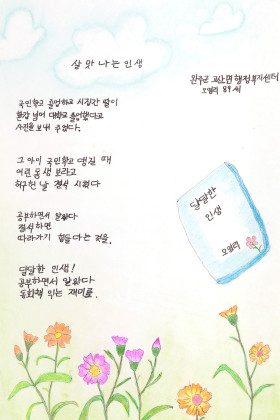 살 와 나 는 인생
완주군 고산면 행정복지센터
오월리 89세
국민학교 졸업하고 시집간 딸이
환갑 넘어 대학교 졸업했다고
사진을 보내 주었다.
그 아이 국민학교 댕길 때
어린 동생 보라고
허구헌 날 결석 시켰다
공부하면서 알았다
결석하면
따라가기 힘들다는 것을.
달달한 인생!
공부하면서 알았다
동화책 읽는 재미를.
달달한
인생
오월리